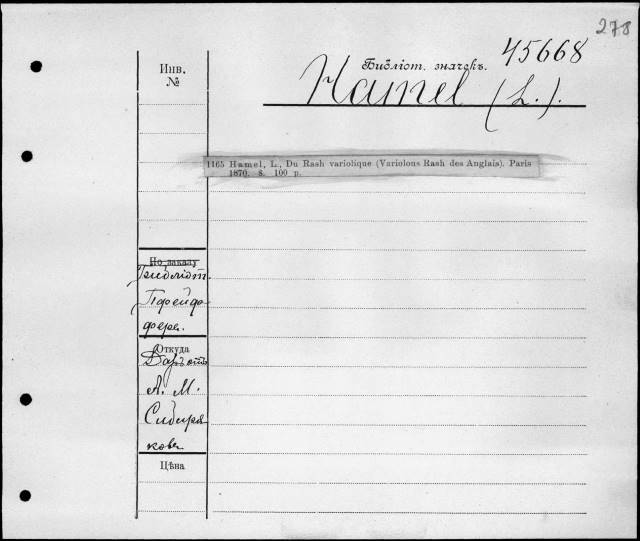 278
45668
Инв.
№
Библіот. значекъ.
Hamel (L.).
1165 Hamel, L., Du Rash variolique (Variolous Rash des Anglais). Paris
1870. 8. 100 p.
По заказу
Библіот.
Пфейф
фера.
Откуда
Даръ отъ
А. М.
Сибиря
кова
Цѣна